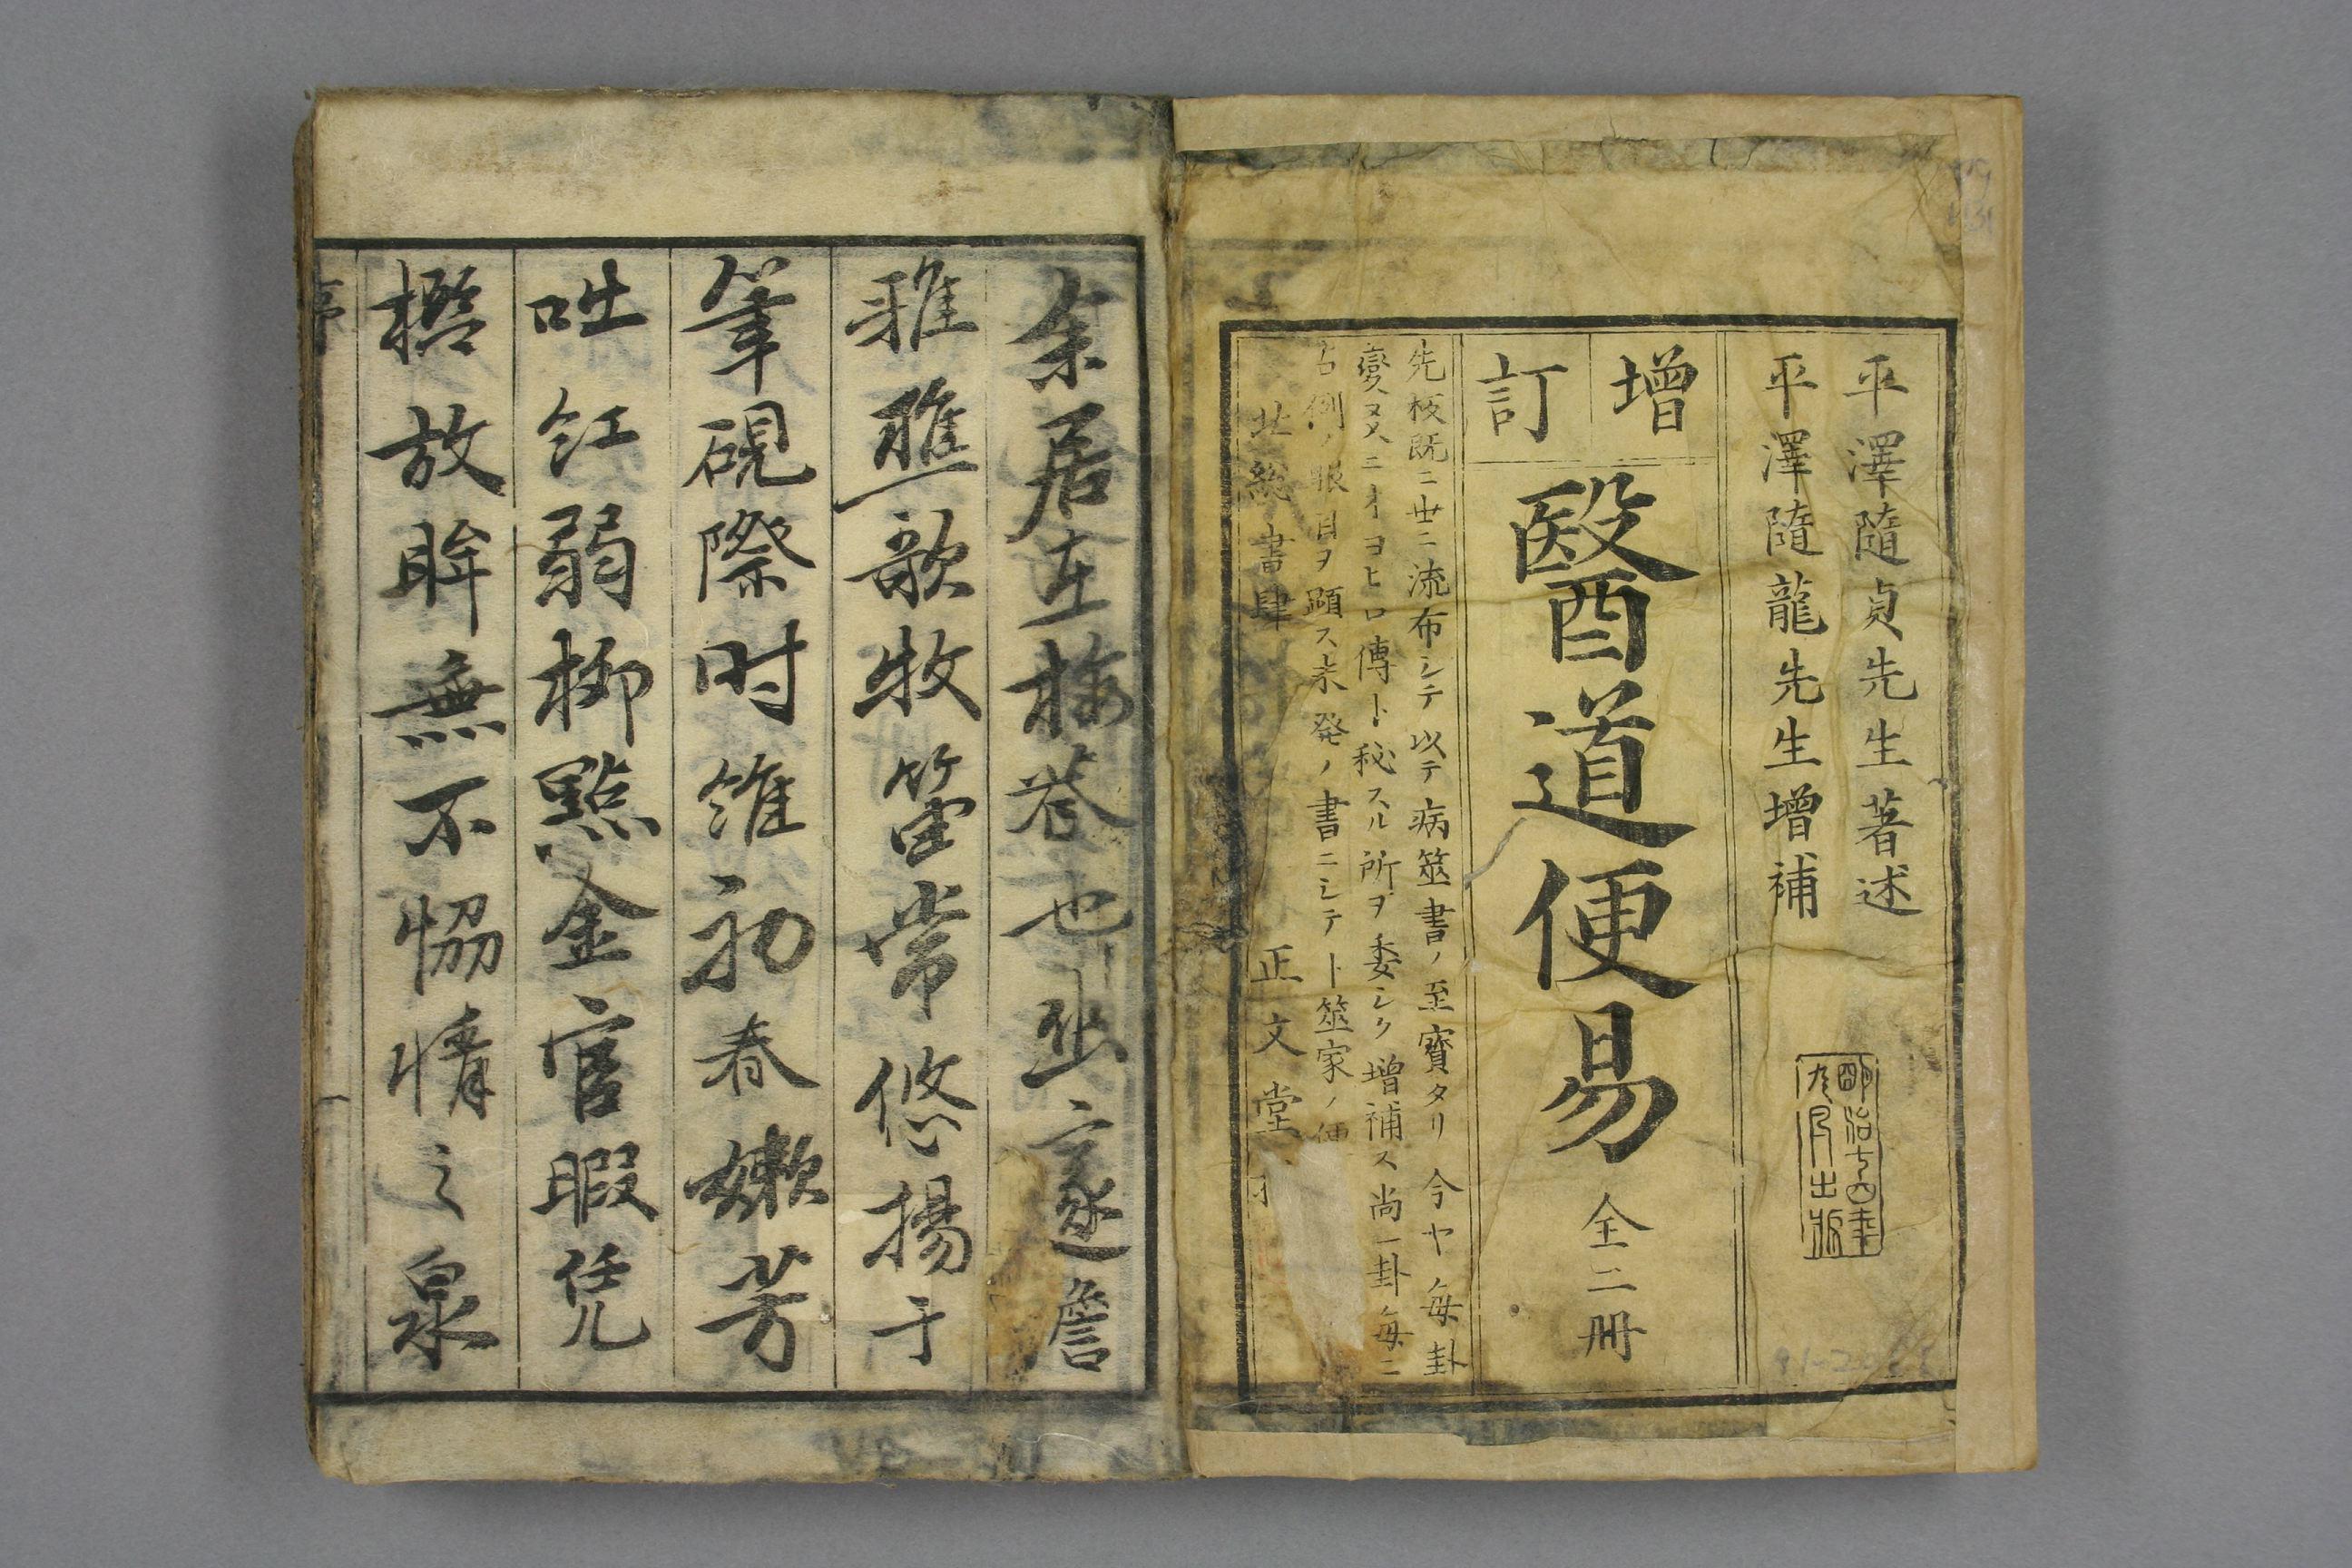 平澤隨貞先生著述
平澤隨龍先生增補
明治十四年
九月出版
增訂
醫道便易 全二冊
先板既ニ世ニ流布シテ以テ病筮書ノ至寶タリ 今ヤ每卦
變爻ニオヨヒ口傳ト秘スル所ヲ委シク增補ス尚一卦每ニ
占例ノ眼目ヲ顕ス未発ノ書ニシテト筮家ノ便
北總書肆 正文堂
余居在梅巷也坐邃詹
雅樵歌牧笛常悠揚于
筆硯際时維初春嫩芳
吐紅弱柳點金官暇凭
檻放眸無不恊情之泉
序
一